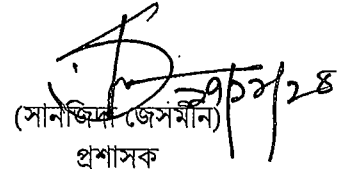 (সানজিদা জেসমীন)
প্রশাসক